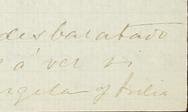 desbaratado
á ver si
Angela y Julia